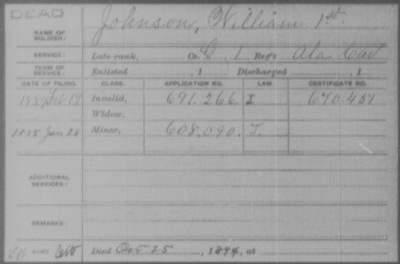 DEAD
NAME OF SOLDIER: Johnson, William 1st.
SERVICE: Late rank, Co. G, 1 Reg't Ala Cav
TERM OF SERVICE: Enlisted , 1 Discharged , 1
DATE OF FILING. CLASS. APPLICATION NO. LAW. CERTIFICATE NO.
Invalid, 691.266 I
Widow,
Jan 28 Minor, 608.090.
ADDITIONAL SERVICES:
REMARKS:
Died Oct 25, 1894, at